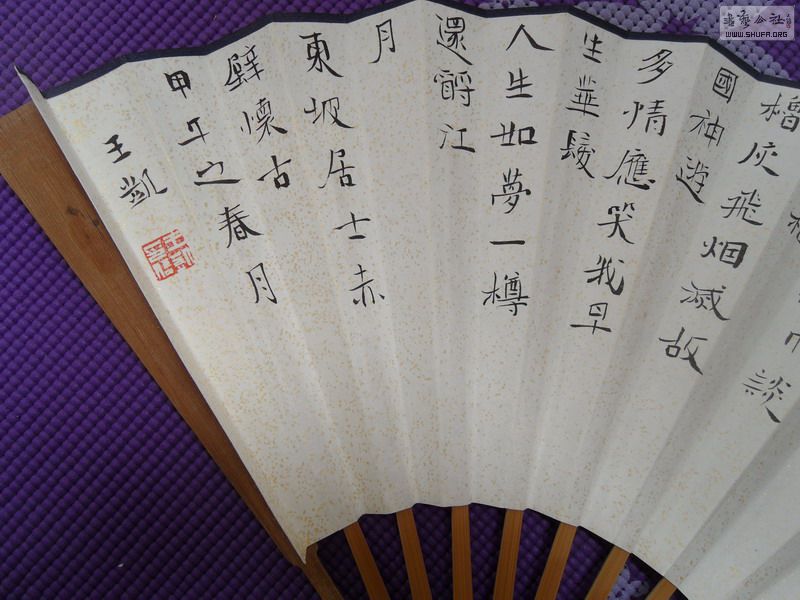 談
檣灰飛烟滅故
國神遊
多情應笑我早
生華髮
人生如夢一樽
還酹江
月
東坡居士赤
壁懷古
甲午之春月
王凱
書藝公社
WWW.SHUFA.ORG